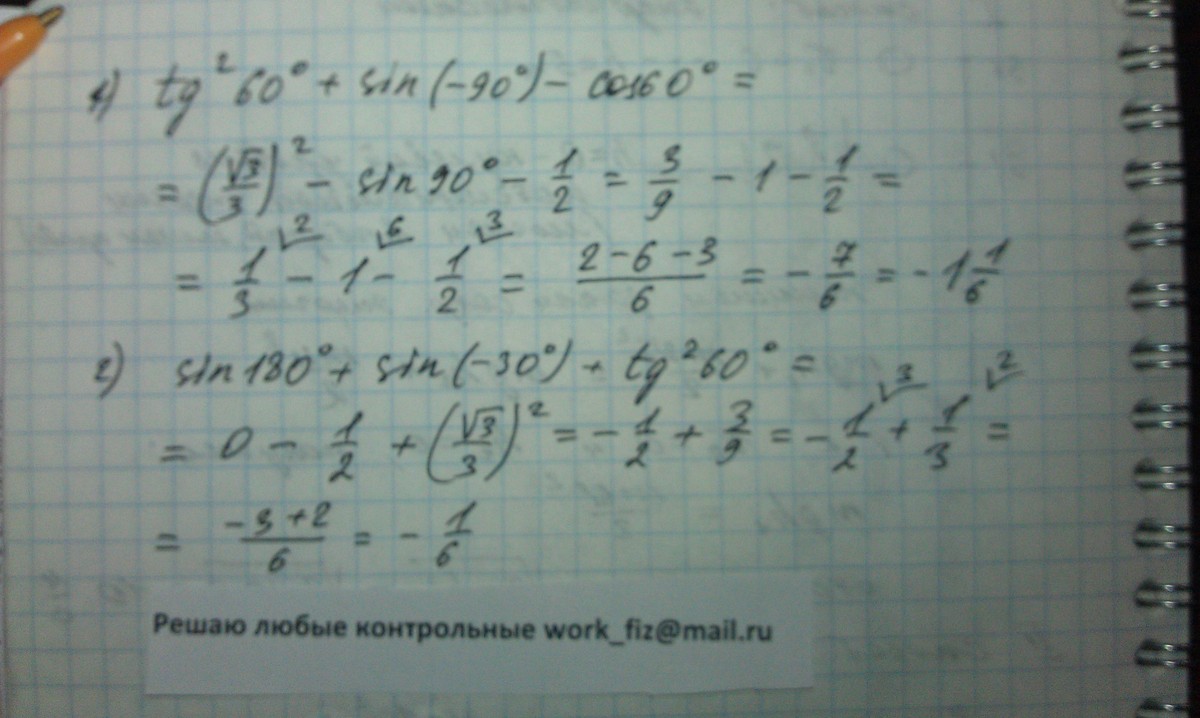 1) tg²60° + sin(-90°) - cos60° =
= (√3/3)² - sin90° - 1/2 = 3/9 - 1 - 1/2 =
= 1/3 - 1 - 1/2 = (2-6-3)/6 = -7/6 = -1 1/6
2) sin180° + sin(-30°) + tg²60° =
= 0 - 1/2 + (√3/3)² = -1/2 + 3/9 = -1/2 + 1/3 =
= (-3+2)/6 = -1/6
Решаю любые контрольные work_fiz@mail.ru